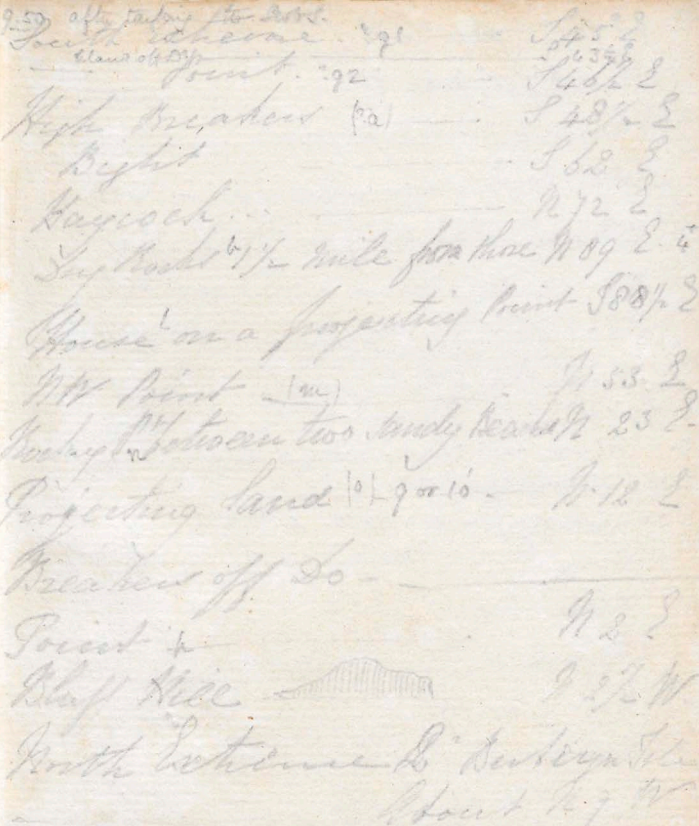 9.50 after taking the
South Extreme g1 S 45 E
Island off Do
Point. g2 S 46½ E
High Breakers (a) S 48½ E
Bight S 62 E
Haycock N 72 E
Dry Rocks 1½ mile from shore N 89 E
House on a projecting Point S 88½ E
NW Point (m) N 53 E
Rocky Pt between two sandy Beaches N 23 E
Projecting Land |o| 9 or 10 N 12 E
Breakers off Do
Point N 2 E
Bluff Hill N 2½ W
North Extreme Do
About N 9 W